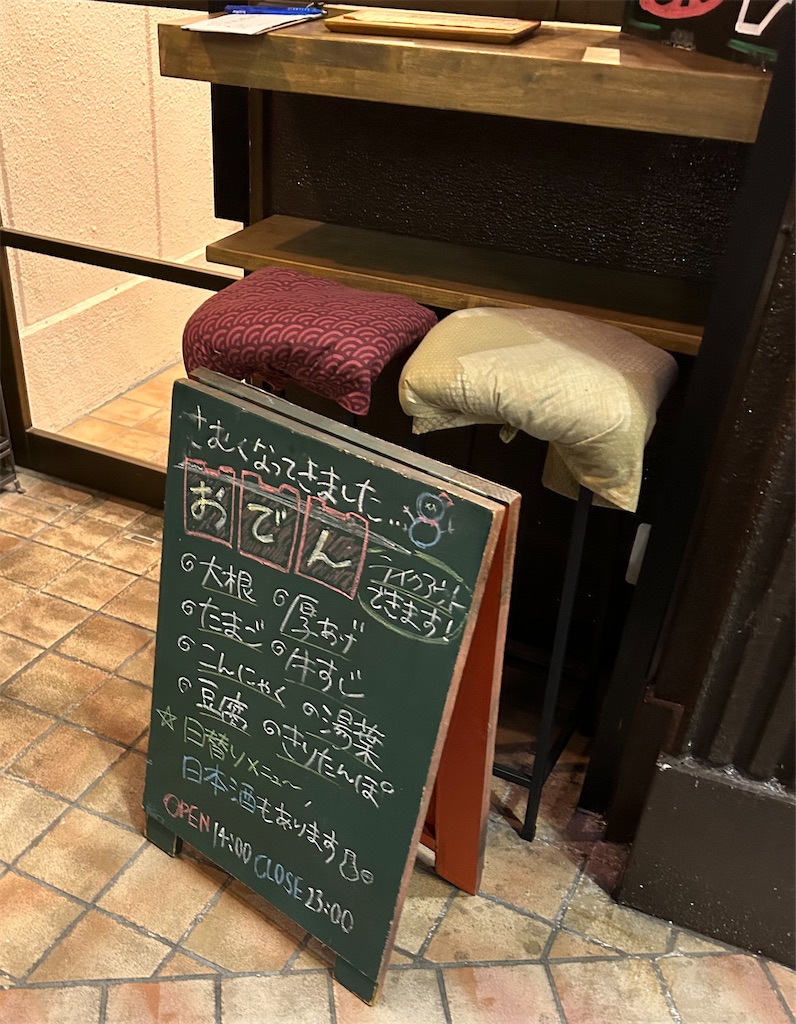 さむくなってきました...
おでん
テイクアウト
できます!
大根
厚あげ
たまご
牛すじ
こんにゃく
湯葉
豆腐
きりたんぽ
☆日替りメニュー
日本酒もあります
OPEN 14:00 CLOSE 23:00